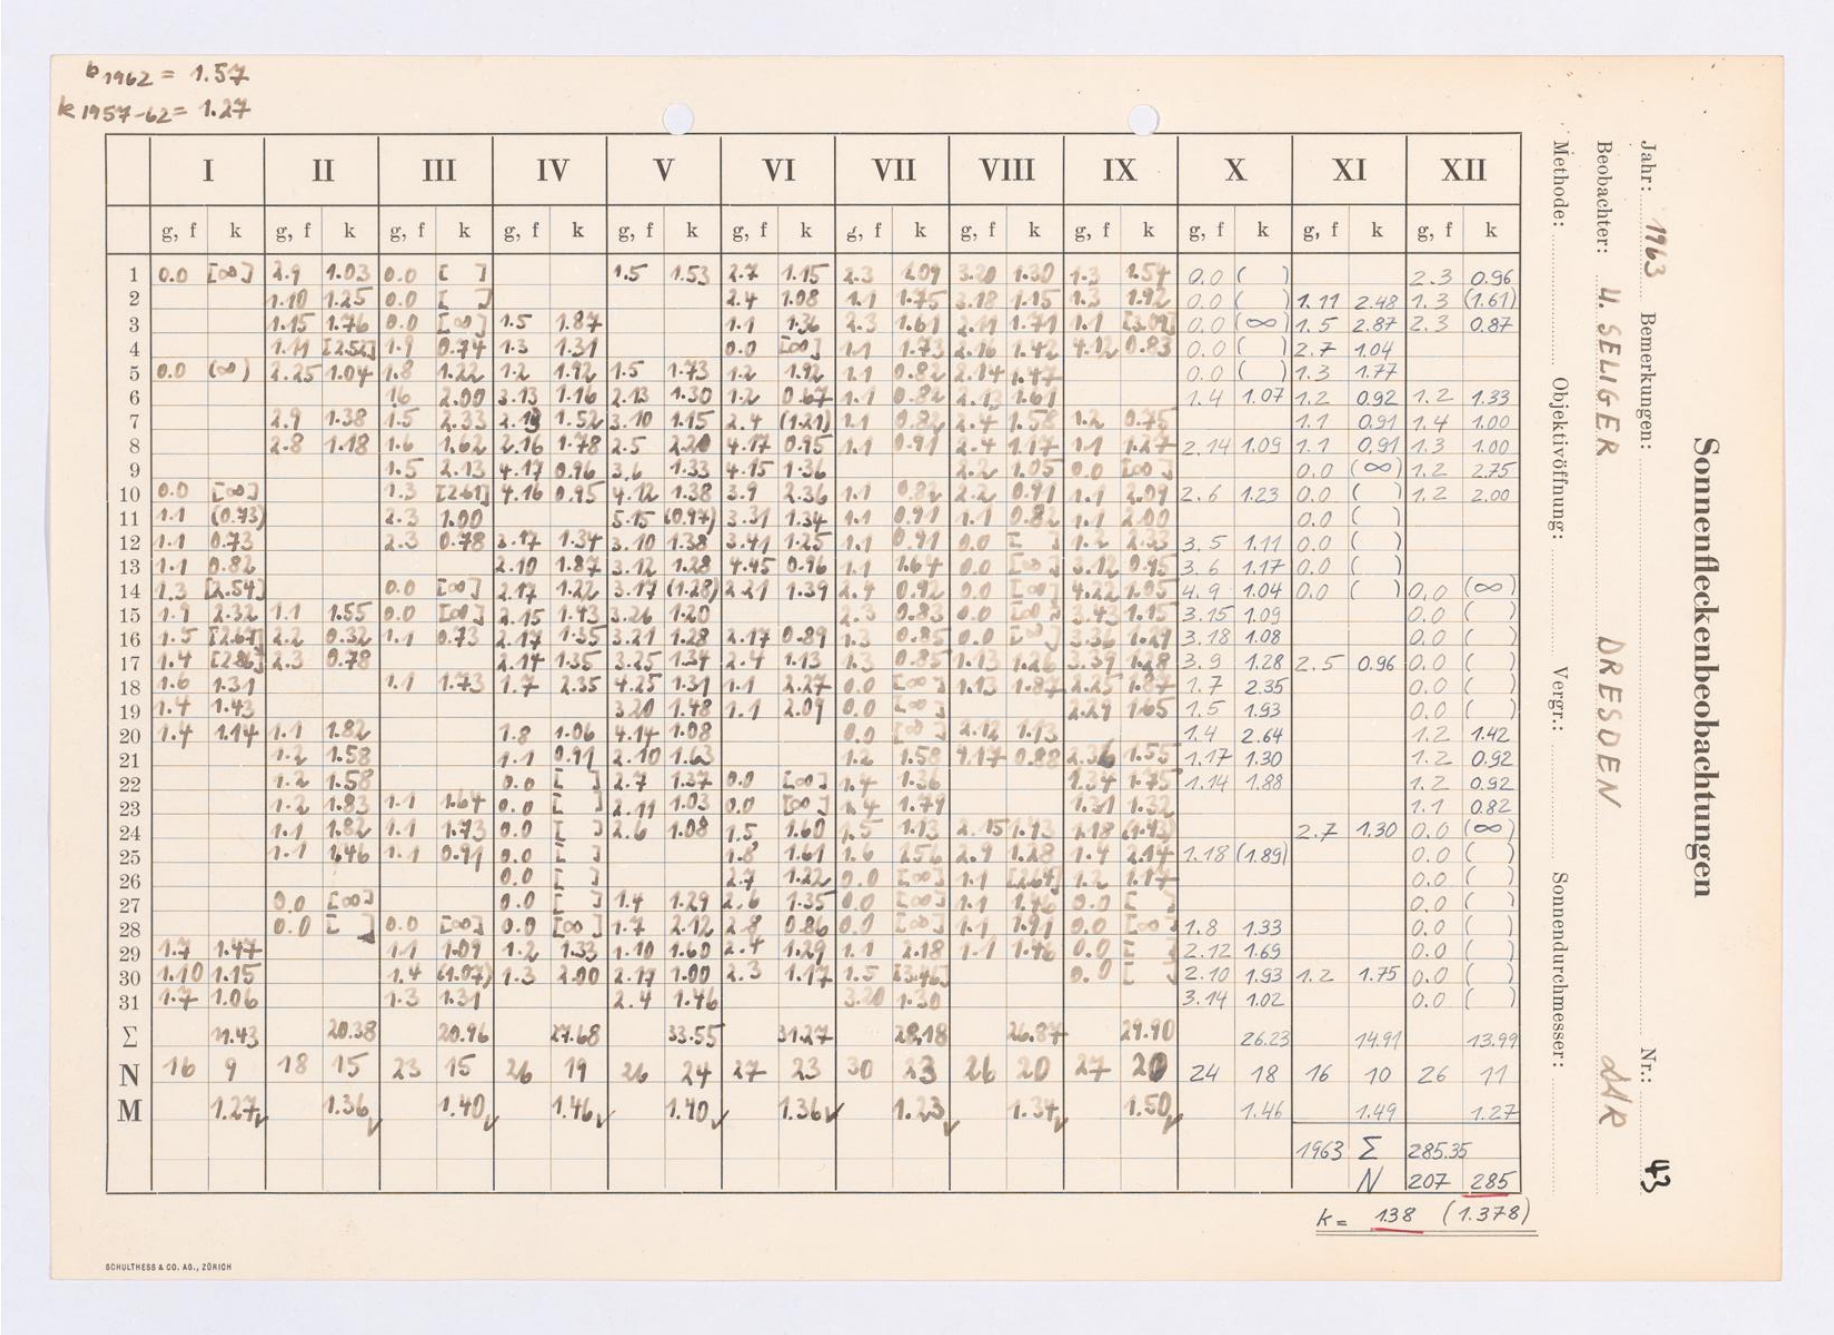 k 1962 = 1.57
k 1957-62 = 1.27
I II III IV V VI VII VIII IX X XI XII
g, f k g, f k g, f k g, f k g, f k g, f k g, f k g, f k g, f k g, f k g, f k g, f k
1 0.0 [∞] 2.9 1.03 0.0 [ ] 1.5 1.53 2.7 1.15 2.3 1.09 3.20 1.30 1.3 1.54 0.0 ( ) 2.3 0.96
2 1.10 1.25 0.0 [ ] 2.4 1.08 1.1 1.75 3.18 1.15 1.3 1.92 0.0 ( ) 1.11 2.48 1.3 (1.61)
3 1.15 1.76 0.0 [∞] 1.5 1.87 1.1 1.36 2.3 1.61 2.11 1.71 1.1 [3.09] 0.0 (∞) 1.5 2.87 2.3 0.87
4 1.11 [2.52] 1.9 0.74 1.3 1.31 0.0 [∞] 1.1 1.73 2.16 1.42 4.12 0.83 0.0 ( ) 2.7 1.04
5 0.0 (∞) 2.25 1.04 1.8 1.22 1.2 1.92 1.5 1.73 1.2 1.92 1.1 0.82 2.14 1.47 0.0 ( ) 1.3 1.77
6 16 2.00 3.13 1.16 2.13 1.30 1.2 0.67 1.1 0.82 2.13 1.61 1.4 1.07 1.2 0.92 1.2 1.33
7 2.9 1.38 1.5 2.33 2.19 1.52 3.10 1.15 2.4 (1.21) 1.1 0.82 2.4 1.58 1.2 0.75 1.1 0.91 1.4 1.00
8 2.8 1.18 1.6 1.62 2.16 1.78 2.5 2.20 4.17 0.95 1.1 0.91 2.4 1.17 1.1 1.27 2.14 1.09 1.1 0.91 1.3 1.00
9 1.5 2.13 4.17 0.96 3.6 1.33 4.15 1.36 2.2 1.05 0.0 [∞] 0.0 (∞) 1.2 2.75
10 0.0 [∞] 1.3 [2.61] 4.16 0.95 4.12 1.38 3.9 2.36 1.1 0.82 2.2 0.91 1.1 2.09 2.6 1.23 0.0 ( ) 1.2 2.00
11 1.1 (0.73) 2.3 1.00 5.15 (0.97) 3.31 1.34 1.1 0.91 1.1 0.82 1.1 2.00 0.0 ( )
12 1.1 0.73 2.3 0.78 3.17 1.34 3.10 1.38 3.41 1.25 1.1 0.91 0.0 [ ] 1.2 2.33 3.5 1.11 0.0 ( )
13 1.1 0.82 2.10 1.87 3.12 1.28 4.45 0.96 1.1 1.64 0.0 [∞] 3.12 0.95 3.6 1.17 0.0 ( )
14 1.3 [2.54] 0.0 [∞] 2.17 1.22 3.17 (1.28) 2.21 1.39 2.4 0.92 0.0 [∞] 4.22 1.05 4.9 1.04 0.0 ( ) 0.0 (∞)
15 1.9 2.32 1.1 1.55 0.0 [∞] 2.15 1.43 3.26 1.20 2.3 0.83 0.0 [∞] 3.43 1.15 3.15 1.09 0.0 ( )
16 1.5 [2.67] 2.2 0.32 1.1 0.73 2.17 1.35 3.21 1.28 2.17 0.89 1.3 0.85 0.0 [∞] 3.36 1.29 3.18 1.08 0.0 ( )
17 1.4 [2.86] 2.3 0.78 2.14 1.35 3.25 1.34 2.4 1.13 1.3 0.85 1.13 1.26 3.39 1.28 3.9 1.28 2.5 0.96 0.0 ( )
18 1.6 1.31 1.1 1.73 1.7 2.35 4.25 1.31 1.1 2.27 0.0 [∞] 1.13 1.87 2.25 1.87 1.7 2.35 0.0 ( )
19 1.4 1.43 3.20 1.48 1.1 2.09 0.0 [∞] 2.29 1.65 1.5 1.93 0.0 ( )
20 1.4 1.14 1.1 1.82 1.8 1.06 4.14 1.08 0.0 [∞] 2.12 1.13 1.4 2.64 1.2 1.42
21 1.2 1.58 1.1 0.91 2.10 1.63 1.2 1.58 4.17 0.88 2.36 1.55 1.17 1.30 1.2 0.92
22 1.2 1.58 0.0 [ ] 2.7 1.37 0.0 [∞] 1.4 1.36 1.34 1.75 1.14 1.88 1.2 0.92
23 1.2 1.83 1.1 1.64 0.0 [ ] 2.11 1.03 0.0 [∞] 1.4 1.79 1.31 1.32 1.1 0.82
24 1.1 1.82 1.1 1.73 0.0 [ ] 2.6 1.08 1.5 1.60 1.5 1.13 2.15 1.43 1.18 (1.43) 2.7 1.30 0.0 (∞)
25 1.1 1.46 1.1 0.91 0.0 [ ] 1.8 1.61 1.6 2.56 2.9 1.28 1.4 2.14 1.18 (1.89) 0.0 ( )
26 0.0 [ ] 2.7 1.22 0.0 [∞] 1.1 [2.64] 1.2 1.17 0.0 ( )
27 0.0 [∞] 0.0 [ ] 1.4 1.29 2.6 1.35 0.0 [∞] 1.1 1.46 0.0 [ ] 0.0 ( )
28 0.0 [ ] 0.0 [∞] 0.0 [∞] 1.7 2.12 2.8 0.86 0.0 [∞] 1.1 1.91 0.0 [∞] 1.8 1.33 0.0 ( )
29 1.7 1.47 1.1 1.09 1.2 1.33 1.10 1.60 2.4 1.29 1.1 2.18 1.1 1.46 0.0 [ ] 2.12 1.69 0.0 ( )
30 1.10 1.15 1.4 (1.07) 1.3 2.00 2.17 1.00 2.3 1.17 1.5 [3.46] 0.0 [ ] 2.10 1.93 1.2 1.75 0.0 ( )
31 1.7 1.06 1.3 1.31 2.4 1.46 3.20 1.30 3.14 1.02 0.0 ( )
Σ 11.43 20.38 20.96 27.68 33.55 31.27 28.18 26.87 29.90 26.23 14.91 13.99
N 16 9 18 15 23 15 26 19 26 24 27 23 30 23 26 20 27 20 24 18 16 10 26 11
M 1.27 1.36 1.40 1.46 1.40 1.36 1.23 1.34 1.50 1.46 1.49 1.27
1963 Σ 285.35
N 207 285
k = 1.38 (1.378)
SCHULTHESS & CO. AG., ZÜRICH
Sonnenfleckenbeobachtungen
Jahr: 1963 Bemerkungen: Nr.: 43
Beobachter: U. SELIGER DRESDEN DDR
Methode: Objektivöffnung: Vergr.: Sonnendurchmesser: